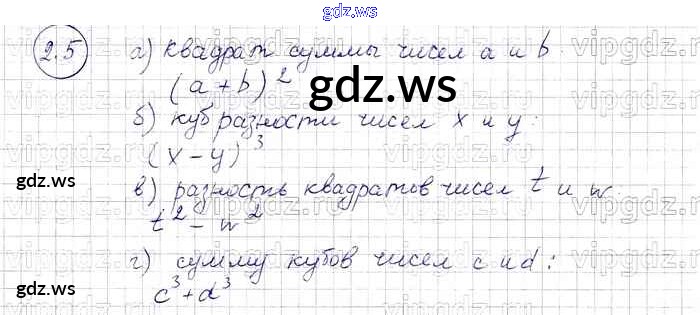 gdz.ws
2.5 а) квадрат суммы чисел a и b
(a+b)²
gdz.ws
б) куб разности чисел x и y:
(x-y)³
gdz.ws
gdz.ws
в) разность квадратов чисел t и w:
t² - w²
г) сумму кубов чисел c и d:
c³+d³
gdz.ws
vipgdz.ru